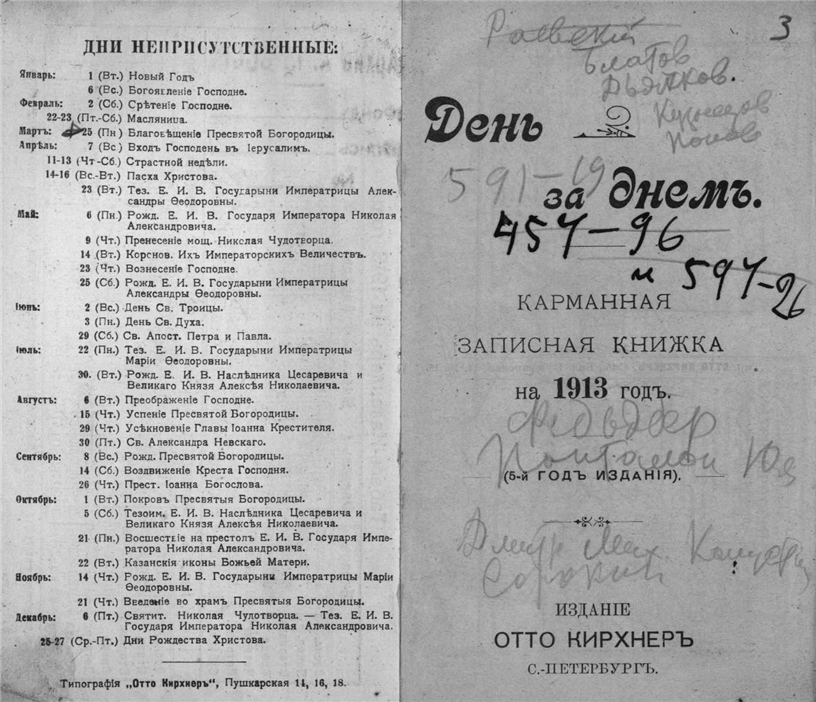 ДНИ НЕПРИСУТСТВЕННЫЕ:
Январь: 1 (Вт.) Новый Годъ
6 (Вс.) Богоявленіе Господне.
Февраль: 2 (Сб.) Срѣтеніе Господне.
22-23 (Пт.-Сб.) Масляница.
Мартъ: 25 (Пн) Благовѣщеніе Пресвятой Богородицы.
Апрѣль: 7 (Вс.) Входъ Господень въ Іерусалимъ.
11-13 (Чт-Сб) Страстной недѣли.
14-16 (Вс.-Вт.) Пасха Христова.
23 (Вт.) Тез. Е. И. В. Государыни Императрицы Алек-
сандры Ѳеодоровны.
Май: 6 (Пн.) Рожд. Е. И. В. Государя Императора Николая
Александровича.
9 (Чт.) Пренесеніе мощ. Николая Чудотворца.
14 (Вт.) Коронов. Ихъ Императорскихъ Величествъ.
23 (Чт.) Вознесеніе Господне.
25 (Сб.) Рожд. Е. И. В. Государыни Императрицы
Александры Ѳеодоровны.
Іюнь: 2 (Вс.) День Св. Троицы.
3 (Пн.) День Св. Духа.
29 (Сб.) Св. Апост. Петра и Павла.
Іюль: 22 (Пн.) Тез. Е. И. В. Государыни Императрицы
Маріи Ѳеодоровны.
30. (Вт.) Рожд. Е. И. В. Наслѣдника Цесаревича и
Великаго Князя Алексѣя Николаевича.
Августъ: 6 (Вт.) Преображеніе Господне.
15 (Чт.) Успеніе Пресвятой Богородицы.
29 (Чт.) Усѣкновеніе Главы Іоанна Крестителя.
30 (Пт.) Св. Александра Невскаго.
Сентябрь: 8 (Вс.) Рожд. Пресвятой Богородицы.
14 (Сб.) Воздвиженіе Креста Господня.
26 (Чт.) Прест. Іоанна Богослова.
Октябрь: 1 (Вт.) Покровъ Пресвятыя Богородицы.
5 (Сб.) Тезоим. Е. И. В. Наслѣдника Цесаревича и
Великаго Князя Алексѣя Николаевича.
21 (Пн.) Восшествіе на престолъ Е. И. В. Государя Импе-
ратора Николая Александровича.
22 (Вт.) Казанскія иконы Божьей Матери.
Ноябрь: 14 (Чт.) Рожд. Е. И. В. Государыни Императрицы Маріи
Ѳеодоровны.
21 (Чт.) Введеніе во храмъ Пресвятыя Богородицы.
Декабрь: 6 (Пт.) Святит. Николая Чудотворца. — Тез. Е. И. В.
Государя Императора Николая Александровича.
25-27 (Ср.-Пт.) Дни Рождества Христова.
Типографія „Отто Кирхнеръ“, Пушкарская 14, 16, 18.
3
Раевский
Дьячков.
Кузнецов
Попов
День
591-19
за днемъ.
457-96
и 597-26
КАРМАННАЯ
ЗАПИСНАЯ КНИЖКА
на 1913 годъ.
(5-й ГОДЪ ИЗДАНІЯ).
Сорокин
ИЗДАНІЕ
ОТТО КИРХНЕРЪ
С.-ПЕТЕРБУРГЪ.